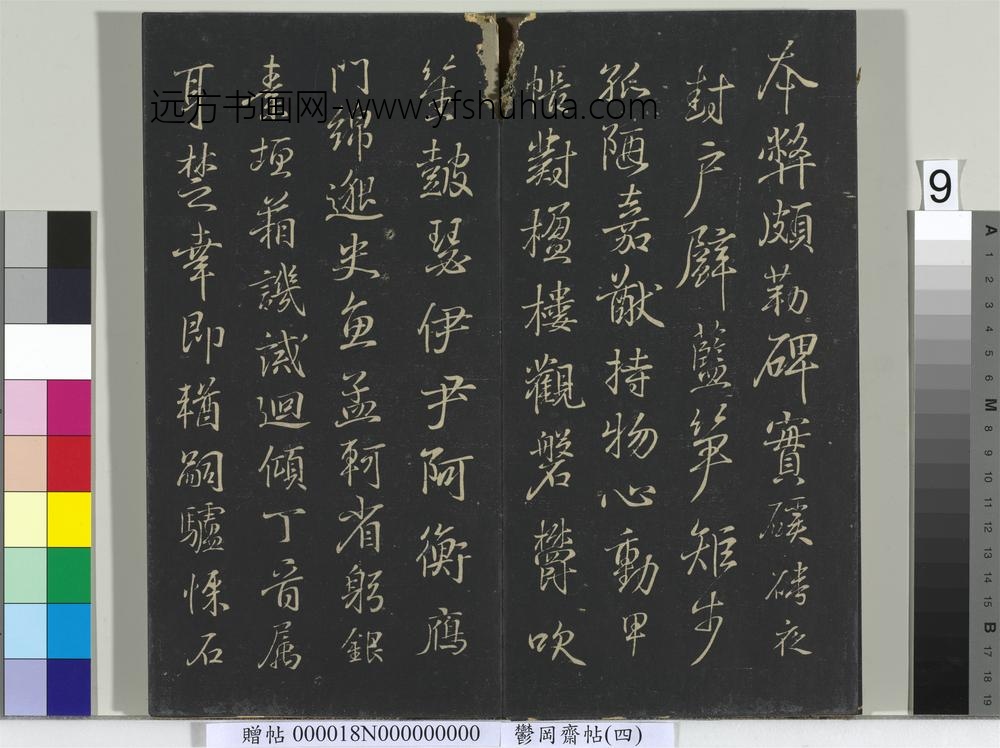 本弊頗勒碑實磎夜
封戶藍筍矩步
孤陋嘉猷持物心動甲
帳對楹樓觀磐鬱吹
笙鼓瑟伊尹阿衡鴈
門綿邈史魚孟軻省躬銀
垣譏誡迴傾丁首属
耳楚幸即輶嗣驢悚石
远方书画网-www.yfshuhua.com
9
A
1
2
3
4
5
6
M
8
9
10
11
12
13
14
15
B
17
18
19
贈帖 000018N000000000 鬱岡齋帖(四)